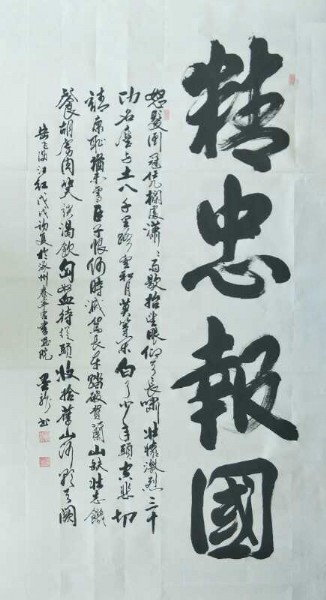 精忠報國
怒髮衝冠凭欄處瀟瀟雨歇抬望眼仰天長嘯壯懷激烈三十
功名塵与土八千里路雲和月莫等閑白了少年頭空悲切
靖康恥猶未雪臣子恨何時滅駕長車踏破賀蘭山缺壯志飢
餐胡虜肉笑談渴飲匈奴血待從頭收拾舊山河朝天闕
岳飛滿江紅戊戌初夏於州書畫院書